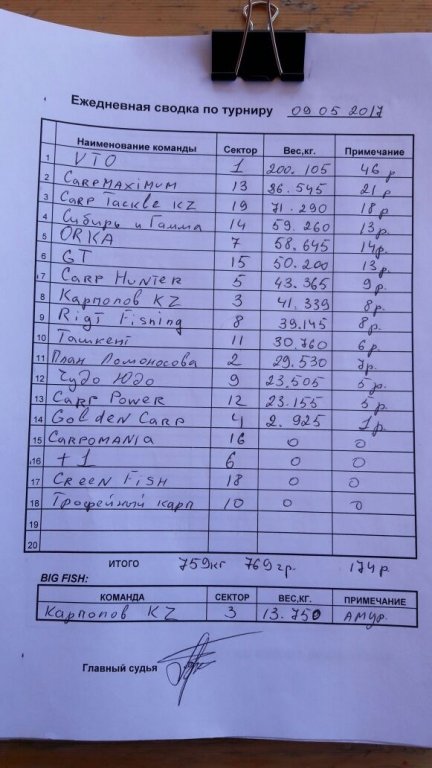 Ежедневная сводка по турниру 09.05 2017
Наименование команды Сектор Вес,кг. Примечание
1 VTO 1 200.105 46 р
2 CARPMAXIMUM 13 86.545 21 р
3 CARP Tackle KZ 19 71.290 18 р
4 Сибирь и Гамма 14 59.260 13 р.
5 ORKA 7 58.645 14 р.
6 GT 15 50.200 13 р.
7 CARP HUNTER 5 43.365 9 р.
8 Карпопов KZ 3 41.339 8 р.
9 Rigt Fishing 8 39.145 8 р.
10 Ташкент 11 30.760 6 р.
11 План Ломоносова 2 29.530 7 р.
12 Чудо Юдо 9 23,505 5 р.
13 CARP POWER 12 23.155 5 р.
14 GOLDEN CARP 4 2.925 1 р.
15 CARPOMANIA 16 0 0
16 +1 6 0 0
17 CREEN FISH 18 0 0
18 Трофейный карп 10 0 0
19
20
ИТОГО 759кг 769гр. 174р.
BIG FISH:
КОМАНДА СЕКТОР ВЕС,КГ. ПРИМЕЧАНИЕ
Карпопов KZ 3 13.750 АМУР.
Главный судья